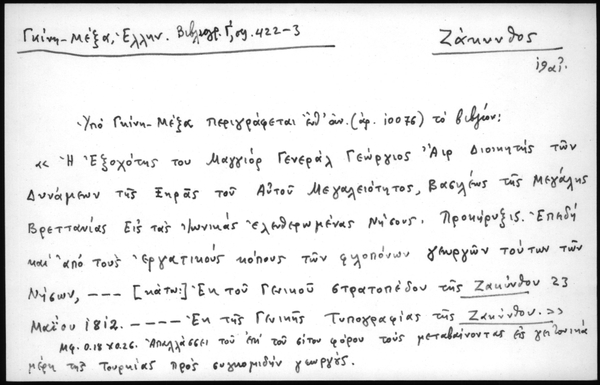 Γκίνη-Μέξα, Ἑλλην. Βιβλιογρ. Γ', σσ. 422-3
Ζάκυνθος
Ὑπό Γκίνη-Μέξα περιγράφεται ἐνθ' ἀν. (ἀρ. 10076) τό βιβλίον:
«Ἡ Ἐξοχότης του Μαγγιόρ Γενεράλ Γεώργιος Ἄιρ Διοικητής τῶν
Δυνάμεων τῆς Ξηρᾶς τοῦ Αὐτοῦ Μεγαλειότητος, Βασιλέως τῆς Μεγάλης
Βρεττανίας Εἰς τάς Ἰωνικάς ἐλευθερωμένας Νήσους. Προκήρυξις. Ἐπειδή
καί ἀπό τούς ἐργατικούς κόπους τῶν φιλοπόνων γεωργῶν τούτων τῶν
Νήσων, --- [κάτω:] Ἐκ τοῦ Γενικοῦ στρατοπέδου τῆς Ζακύνθου 23
Μαΐου 1812. ---- Ἐκ τῆς Γενικῆς Τυπογραφίας τῆς Ζακύνθου.»
Μφ. 0.18 x 0.26. Ἀπαλλάσσει τοῦ ἐπί τοῦ σίτου φόρου τούς μεταβαίνοντας εἰς γειτονικά
μέρη τῆς Τουρκίας πρός συγκομιδήν γεωργούς.